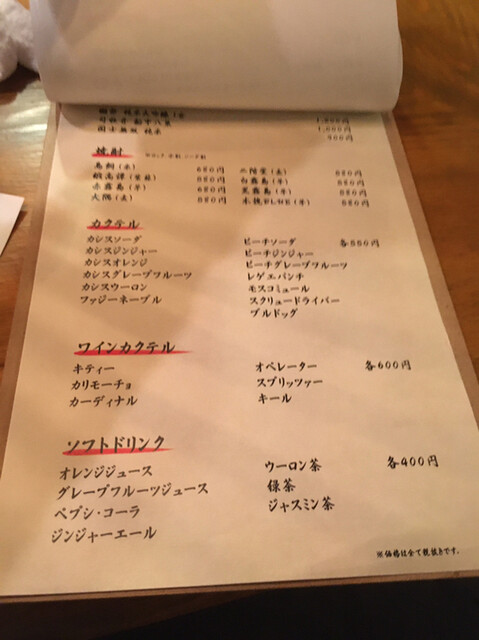 司牡丹 船中八策 1,000円
国士無双 純米 900円
焼酎
鳥飼(米) 680円 二階堂(麦) 580円
赤霧島(芋) 580円 黒霧島(芋) 580円
大隅(麦) 580円 木挽BLUE(芋) 580円
カクテル
カシスソーダ ピーチソーダ 各550円
カシスジンジャー ピーチジンジャー
カシスオレンジ ピーチグレープフルーツ
カシスグレープフルーツ レゲエパンチ
カシスウーロン モスコミュール
ファジーネーブル スクリュードライバー
ブルドッグ
ワインカクテル
キティー オペレーター 各600円
カリモーチョ スプリッツァー
カーディナル キール
ソフトドリンク
オレンジジュース ウーロン茶 各400円
グレープフルーツジュース 緑茶
ペプシ・コーラ ジャスミン茶
ジンジャーエール
※価格は全て税抜きです。